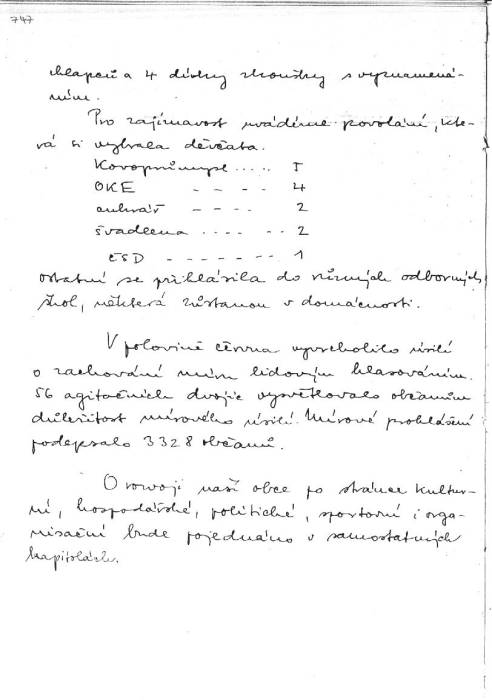 747
chlapců a 4 dívky zkoušky s vyznamená-
ním.
Pro zajímavost uvádíme povolání, kte-
rá si vybrala děvčata.
Kovoprůmysl ..... 5
OKE - - - - 4
cukrář - - - - 2
švadlena .... -- 2
ČSD - - - - - - 1
ostatní se přihlásila do různých odborných
škol, některá zůstanou v domácnosti.
V polovině června vyvrcholilo úsilí
o zachování míru lidovým hlasováním.
56 agitačních dvojic vysvětlovalo občanům
důležitost mírového úsilí. Mírové prohlášení
podepsalo 3328 občanů.
O rozvoji naší obce po stránce kultur-
ní, hospodářské, politické, sportovní i orga-
nisační bude pojednáno v samostatných
kapitolách.